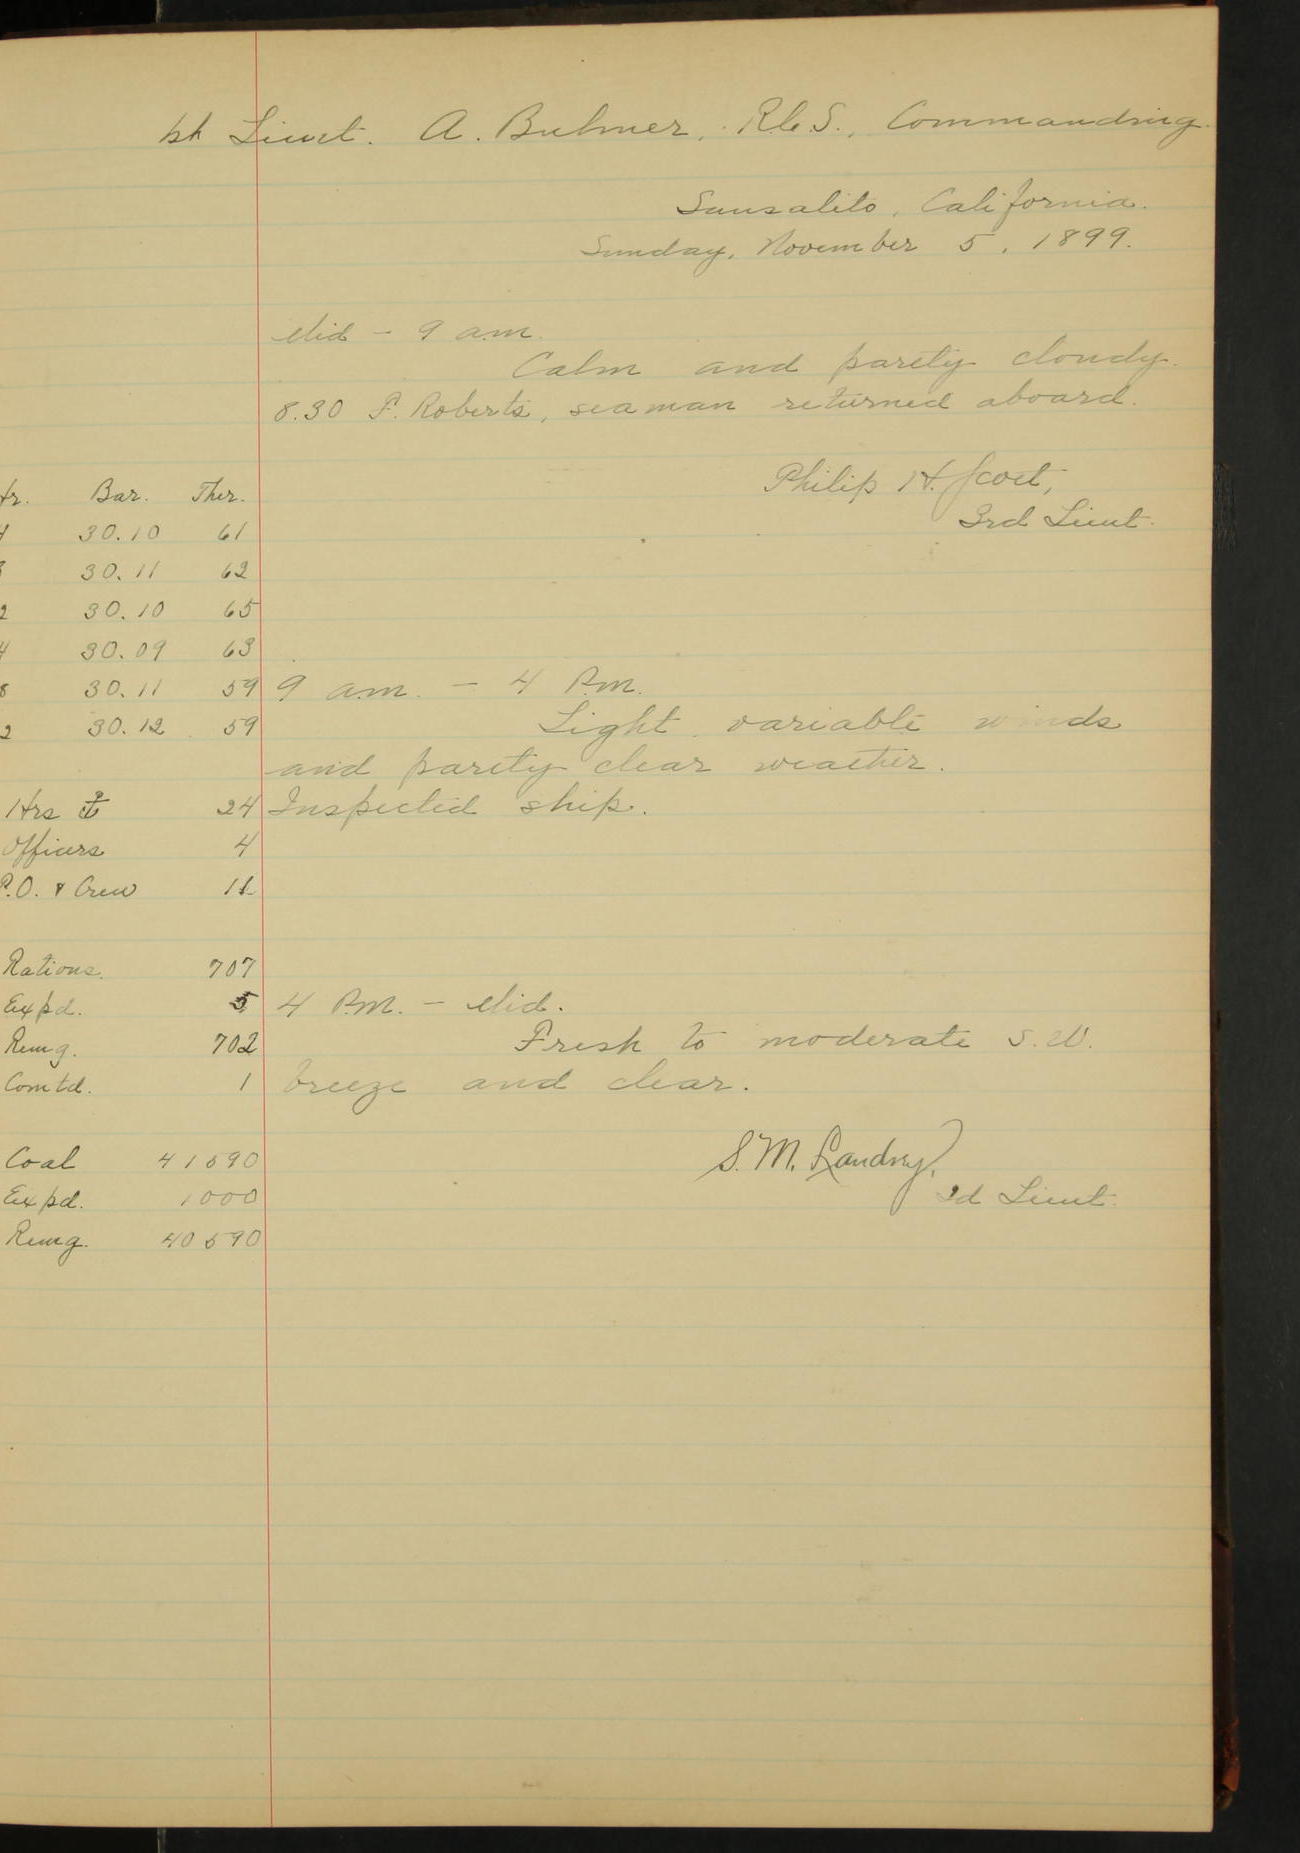 1st Lieut. A. Buhner, R.C.S., Commanding.
Sausalito, California.
Sunday, November 5, 1899.
Mid - 9 a.m.
Calm and partly cloudy.
8.30 F. Roberts, seaman returned aboard.
Philip H. Scott,
3rd Lieut.
Hr. Bar. Ther.
4 30.10 61
8 30.11 62
2 30.10 65
4 30.09 63
8 30.11 59
2 30.12 59
9 a.m. - 4 P.m.
Light variable winds
and partly clear weather.
Hrs at 24
Inspected ship.
Officers 4
P.O. & Crew 11
Rations. 707
Expd. 5
Remg. 702
Comtd. 1
4 P.M. - Mid.
Fresh to moderate S.W.
breeze and clear.
S. M. Landry,
2d Lieut.
Coal 41590
Expd. 1000
Remg. 40590